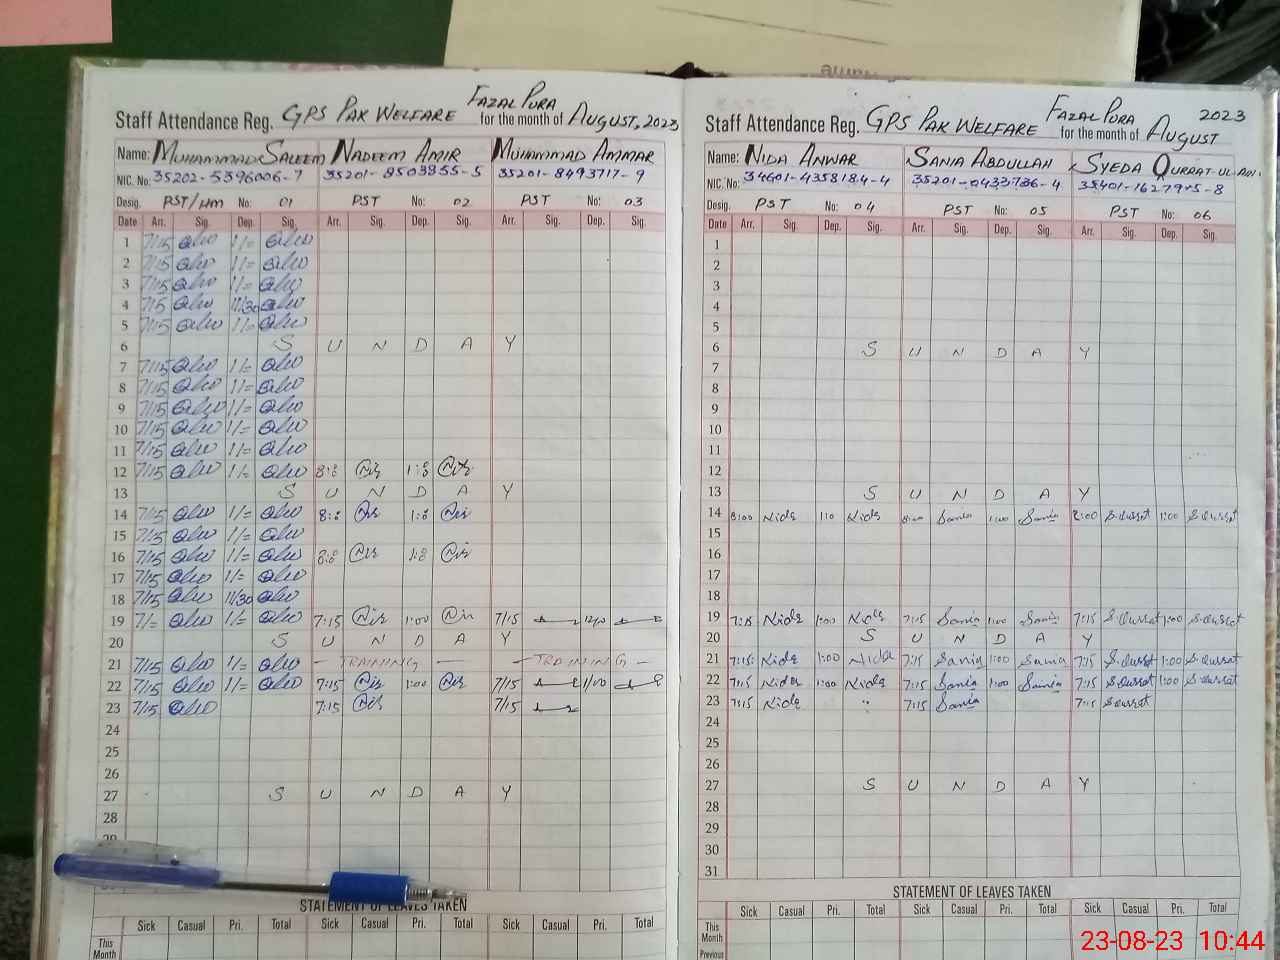 Staff Attendance Reg. GPS PAK WELFARE FAZAL PURA for the month of AUGUST, 2023
Name: MUHAMMAD SALEEM NADEEM AMIR MUHAMMAD AMMAR
NIC. No: 35202-5396006-7 35201-8503955-5 35201-8493717-9
Desig. PST/HM No: 01 PST No: 02 PST No: 03
Date Arr. Sig. Dep. Sig. Arr. Sig. Dep. Sig. Arr. Sig. Dep. Sig.
1 7/15 1/=
2 7/15 1/=
3 7/15 1/=
4 7/15 11/30
5 7/15 1/=
6 S U N D A Y
7 7/15 1/=
8 7/15 1/=
9 7/15 1/=
10 7/15 1/=
11 7/15 1/=
12 7/15 1/=
13 S U N D A Y
14 7/15 1/=
15 7/15 1/=
16 7/15 1/=
17 7/15 1/=
18 7/15 11/30
19 7/= 1/= 7:15 1:00 7/15
20 S U N D A Y
21 7/15 1/= - TRAINING - - TRAINING -
22 7/15 1/= 7:15 1:00 7/15 11/00
23 7/15 7:15 7/15
24
25
26
27 S U N D A Y
28
STATEMENT OF LEAVES TAKEN
Sick Casual Pri. Total Sick Casual Pri. Total Sick Casual Pri. Total
This Month
Staff Attendance Reg. GPS PAK WELFARE FAZAL PURA for the month of AUGUST 2023
Name: NIDA ANWAR SANIA ABDULLAH SYEDA QURRAT-UL-AIN
NIC. No: 34601-4358184-4 35201-0433736-4
Desig. PST No: 04 PST No: 05 PST No: 06
Date Arr. Sig. Dep. Sig. Arr. Sig. Dep. Sig. Arr. Sig. Dep. Sig.
1
2
3
4
5
6 S U N D A Y
7
8
9
10
11
12
13 S U N D A Y
14 8:00 Nida Nida Sania 1:00 Sania 8:00 S.Qurrat 1:00 S.Qurrat
15
16
17
18
19 7:15 Nida 1:00 Nida 7:15 Sania 1:00 Sania 7:15 S.Qurrat 1:00 S.Qurrat
20 S U N D A Y
21 7:15 Nida 1:00 Nida 7:15 Sania 1:00 Sania 7:15 S.Qurrat 1:00 S.Qurrat
22 7:15 Nida 1:00 Nida 7:15 Sania 1:00 Sania 7:15 S.Qurrat 1:00 S.Qurrat
23 7:15 Nida 7:15 Sania 7:15 S.Qurrat
24
25
26
27 S U N D A Y
28
29
30
31
STATEMENT OF LEAVES TAKEN
Sick Casual Pri. Total Sick Casual Pri. Total Sick Casual Pri. Total
This Month
Previous
23-08-23 10:44